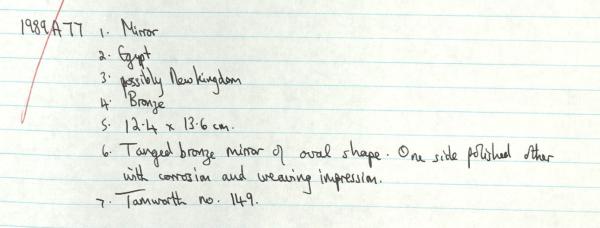 1989A77 1. Mirror
2. Egypt
3. possibly New kingdom
4. Bronze
5. 12.4 x 13.6 cm.
6. Tanged bronze mirror of oval shape. One side polished other
with corrosion and weaving impression.
7. Tamworth no. 149.